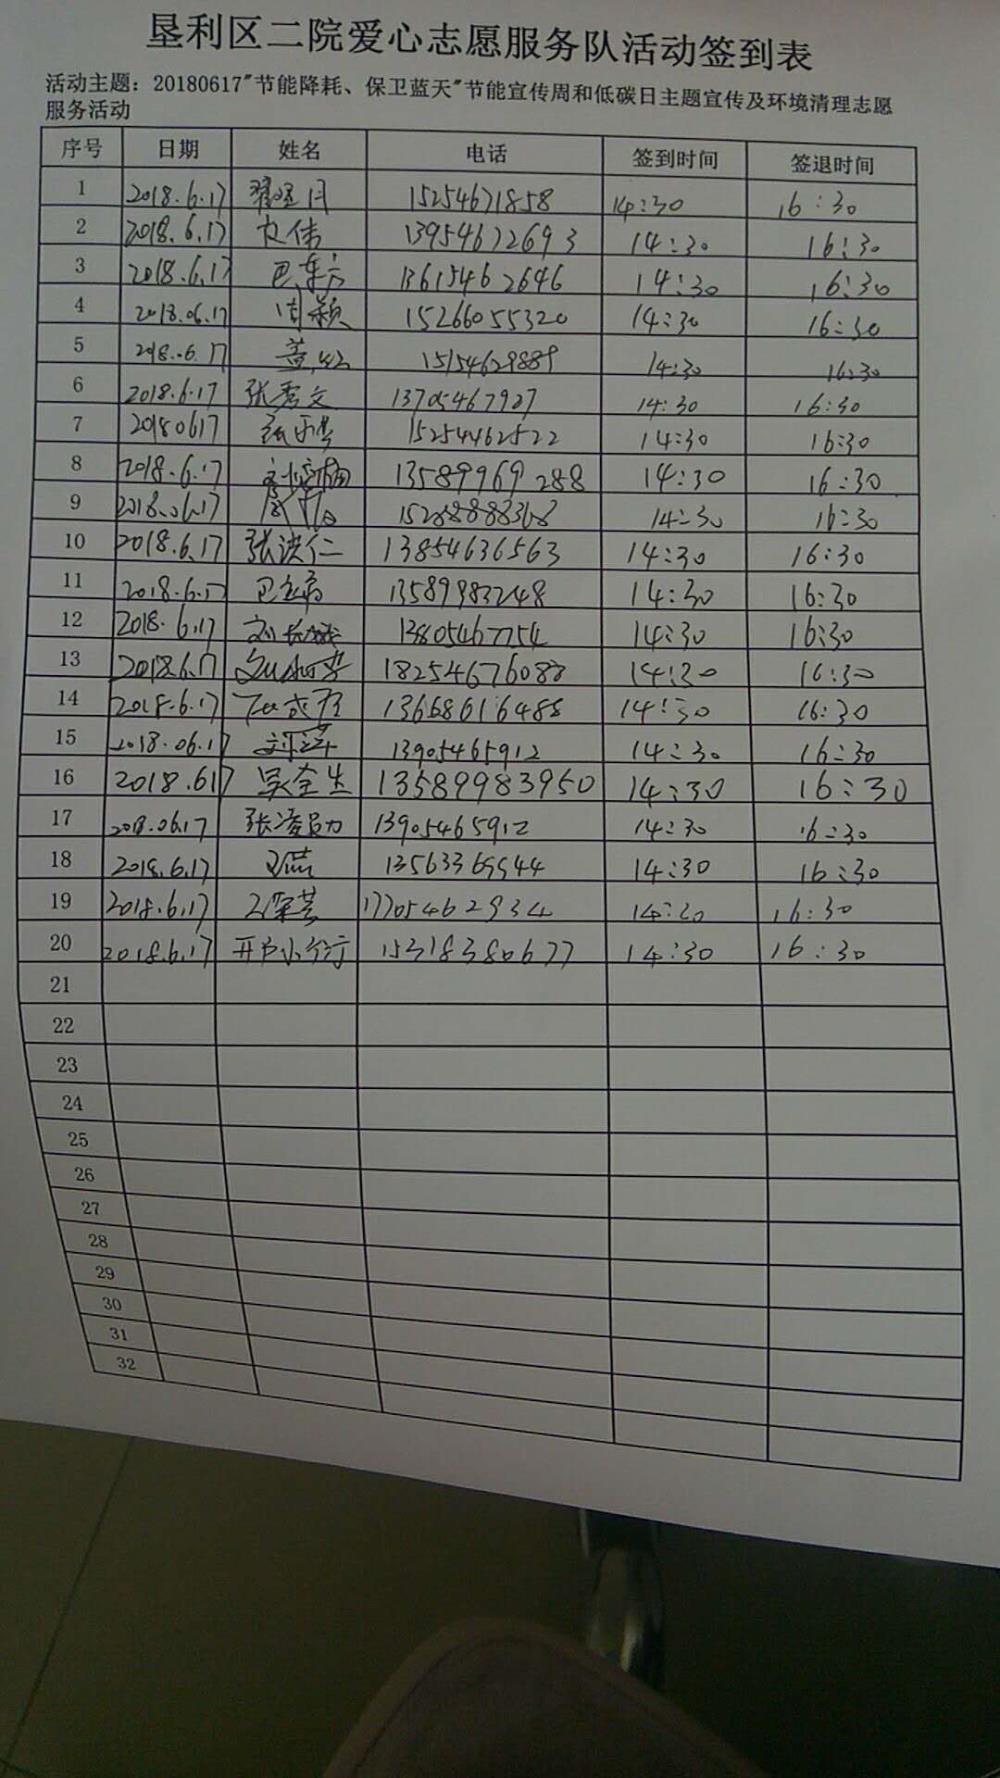 垦利区二院爱心志愿服务队活动签到表
活动主题：20180617"节能降耗、保卫蓝天"节能宣传周和低碳日主题宣传及环境清理志愿
服务活动
序号 日期 姓名 电话 签到时间 签退时间
1 2018.6.17 15254671858 14:30 16:30
2 2018.6.17 13954672693 14:30 16:30
3 2018.6.17 巴东方 13615462646 14:30 16:30
4 2018.06.17 周颖 15266055320 14:30 16:30
5 2018.06.17 15154629889 14:30 16:30
6 2018.6.17 张秀文 13705467927 14:30 16:30
7 20180617 15254462522 14:30 16:30
8 2018.6.17 13589969288 14:30 16:30
9 2018.06.17 14:30 16:30
10 2018.6.17 张洪仁 13854636563 14:30 16:30
11 2018.6.17 13589983248 14:30 16:30
12 2018.6.17 刘长城 13805467754 14:30 16:30
13 2018.6.17 18254676088 14:30 16:30
14 2018.6.17 13668616488 14:30 16:30
15 2018.06.17 13905465912 14:30 16:30
16 2018.617 吴全生 13589983950 14:30 16:30
17 2018.06.17 张凌云力 13905465912 14:30 16:30
18 2018.6.17 13563369544 14:30 16:30
19 2018.6.17 17705462934 14:30 16:30
20 2018.6.17 15318380677 14:30 16:30
21
22
23
24
25
26
27
28
29
30
31
32